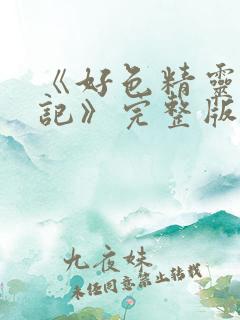 《好色精靈
記》完整版
九夜妹
未经同意禁止转载